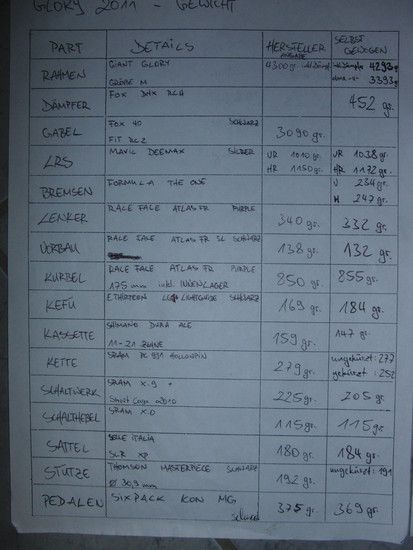 GLORY 2011 - GEWICHT
PART DETAILS HERSTELLER ANGABE SELBST GEWOGEN
RAHMEN GIANT GLORY 4300gr. 4293g
GRÖßE M 3393g.
DÄMPFER FOX DHX RC4 452 gr.
GABEL FOX 40 SCHWARZ 3090 gr.
FIT RC2
LRS MAVIC DEEMAX SILBER VR 1010 gr. VR 1038 gr.
HR 1150 gr. HR 1172 gr.
BREMSEN FORMULA THE ONE V 234 gr.
H 247 gr.
LENKER RACE FACE ATLAS FR PURPLE 340 gr. 332 gr.
VORBAU RACE FACE ATLAS FR SL SCHWARZ 138 gr. 132 gr.
KURBEL RACE FACE ATLAS FR PURPLE 850 gr. 855 gr.
175 mm inkl. INNENLAGER
KEFÜ E.THIRTEEN LG1+ LIGHTGUIDE SCHWARZ 169 gr. 184 gr.
KASSETTE SHIMANO DURA ACE 159 gr. 147 gr.
11-21 ZÄHNE
KETTE SRAM PC 991 HOLLOWPIN 279 gr. ungekürzt: 277
gekürzt: 252
SCHALTWERK SRAM X.9 225 gr. 205 gr.
Short Cage 2010
SCHALTHEBEL SRAM X.0 115 gr. 115 gr.
SATTEL SELLE ITALIA 180 gr. 184 gr.
SLR XP
STÜTZE THOMSON MASTERPIECE SCHWARZ 192 gr. ungekürzt: 191
Ø 30,9 mm
PEDALEN SIXPACK ICON MG 375 gr. 369 gr.
schwarz